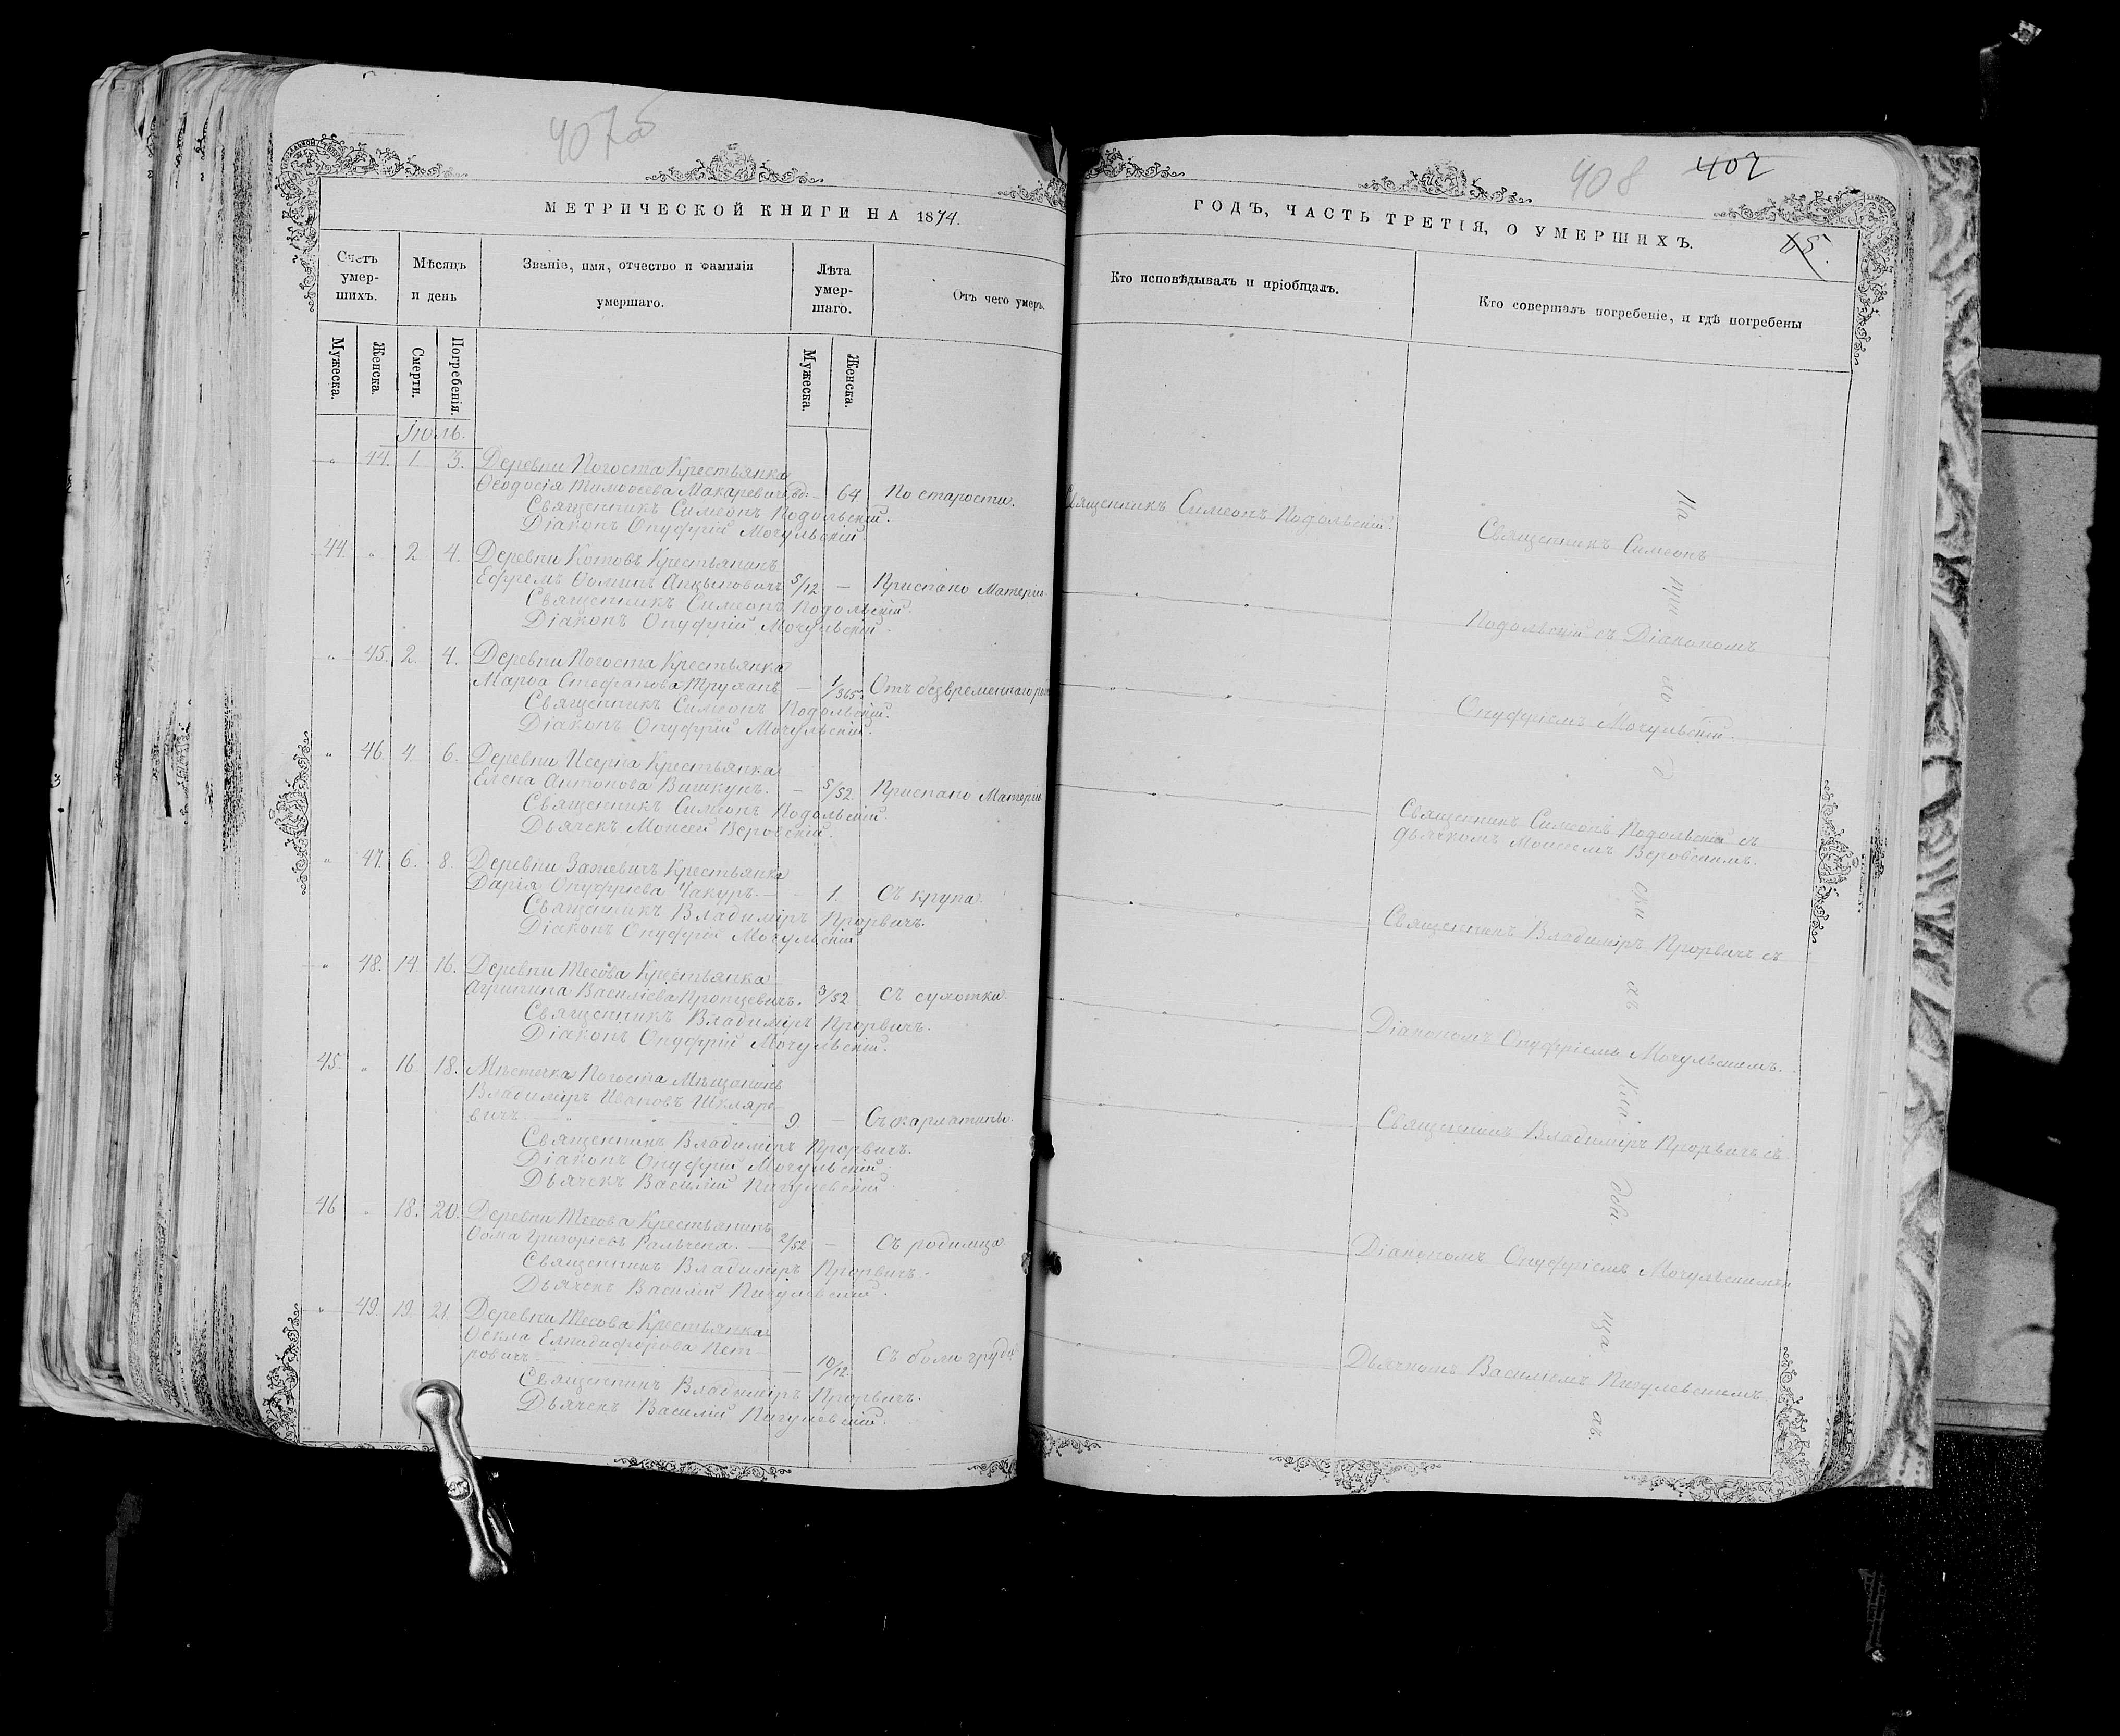 407об
МЕТРИЧЕСКОЙ КНИГИ НА 1874.
Счетъ умер-шихъ.
Мѣсяцъ и день
Званіе, имя, отчество и фамилія умершаго.
Лѣта умер-шаго.
Отъ чего умеръ.
Мужеска.
Женска.
Смерти.
Погребенія.
Мужеска.
Женска.
Іюль.
„ 44. 1 3. Деревни Погоста Крестьянка
Ѳеодосія Тимоѳеева Макаревичъ — 64 По старости.
Священникъ Симеонъ Подольскій.
Діаконъ Онуфрій Мочульскій.
44. „ 2. 4. Деревни Котовъ Крестьянинъ
Ефремъ Ѳоминъ 5/12 — Приспано Матерію.
Священникъ Симеонъ Подольскій.
Діаконъ Онуфрій Мочульскій.
„ 45. 2. 4. Деревни Погоста Крестьянка
Марѳа Стефанова Труханъ — 1/365 Отъ безвременнаго
Священникъ Симеонъ Подольскій.
Діаконъ Онуфрій Мочульскій.
„ 46. 4. 6. Деревни Исерна Крестьянка
Елена Антонова Вашкунъ. — 5/52. Приспано Матерію
Священникъ Симеонъ Подольскій.
Дьячекъ Моисей Веровскій.
„ 47. 6. 8. Деревни Зажевичъ Крестьянка
Дарія Онуфріева — 1. Съ крупа.
Священникъ Владиміръ Прорвичъ.
Діаконъ Онуфрій Мочульскій
„ 48. 14. 16. Деревни Тесова Крестьянка
Агрипина Василіева 3/52 Съ сухотки.
Священникъ Владиміръ Прорвичъ.
Діаконъ Онуфрій Мочульскій.
45. „ 16. 18. Мѣстечка Погоста Мѣщанинъ
Владиміръ Ивановъ Шкляре-
вичъ. 9. — Съ скарлатины.
Священникъ Владиміръ Прорвичъ.
Діаконъ Онуфрій Мочульскій.
Дьячекъ Василій Пигулевскій.
46 „ 18. 20. Деревни Тесова Крестьянинъ
Ѳома Григоріевъ Ральченя. — 2/52 — Съ родимца
Священникъ Владиміръ Прорвичъ.
Дьячекъ Василій Пигулевскій.
„ 49. 19. 21. Деревни Тесова Крестьянка
Ѳекла Епидифорова Пет-
ровичъ — 10/12. Съ боли груди
Священникъ Владиміръ Прорвичъ.
Дьячекъ Василій Пигулевскій.
408 402
ГОДЪ, ЧАСТЬ ТРЕТІЯ, О УМЕРШИХЪ.
45.
Кто исповѣдывалъ и пріобщалъ.
Кто совершалъ погребеніе, и гдѣ погребены
Священникъ Симеонъ Подольскій.
Священникъ Симеонъ
Подольскій съ Діакономъ
Онуфріемъ Мочульскій.
Священникъ Симеонъ Подольскій съ
дьячкомъ Моисеемъ Веровскимъ.
Священникъ Владиміръ Прорвичъ съ
Діакономъ Онуфріемъ Мочульскимъ.
Священникъ Владиміръ Прорвичъ съ
Діакономъ Онуфріемъ Мочульскимъ
Дьячкомъ Василіемъ Пигулевскимъ.
На при хо д ски хъ кла дби ща хъ.